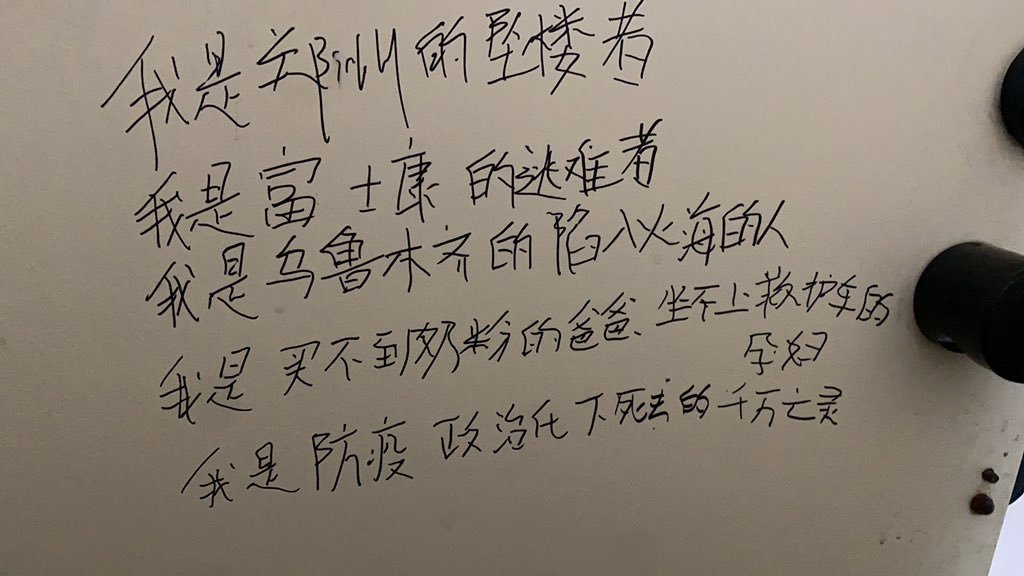 我是郑州的坠楼者
我是富士康的逃难者
我是乌鲁木齐的陷入火海的人
我是买不到奶粉的爸爸、坐不上救护车的
孕妇
我是防疫政治化下死去的千万亡灵